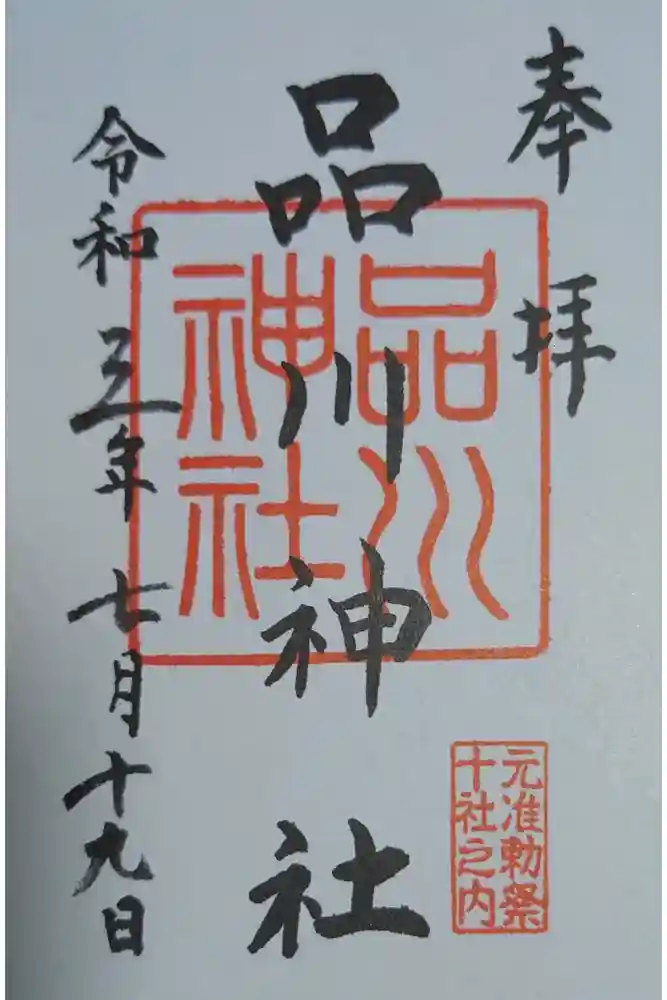 奉拝
品川神社
品川
神社
元准勅祭
十社之内
令和五年七月十九日